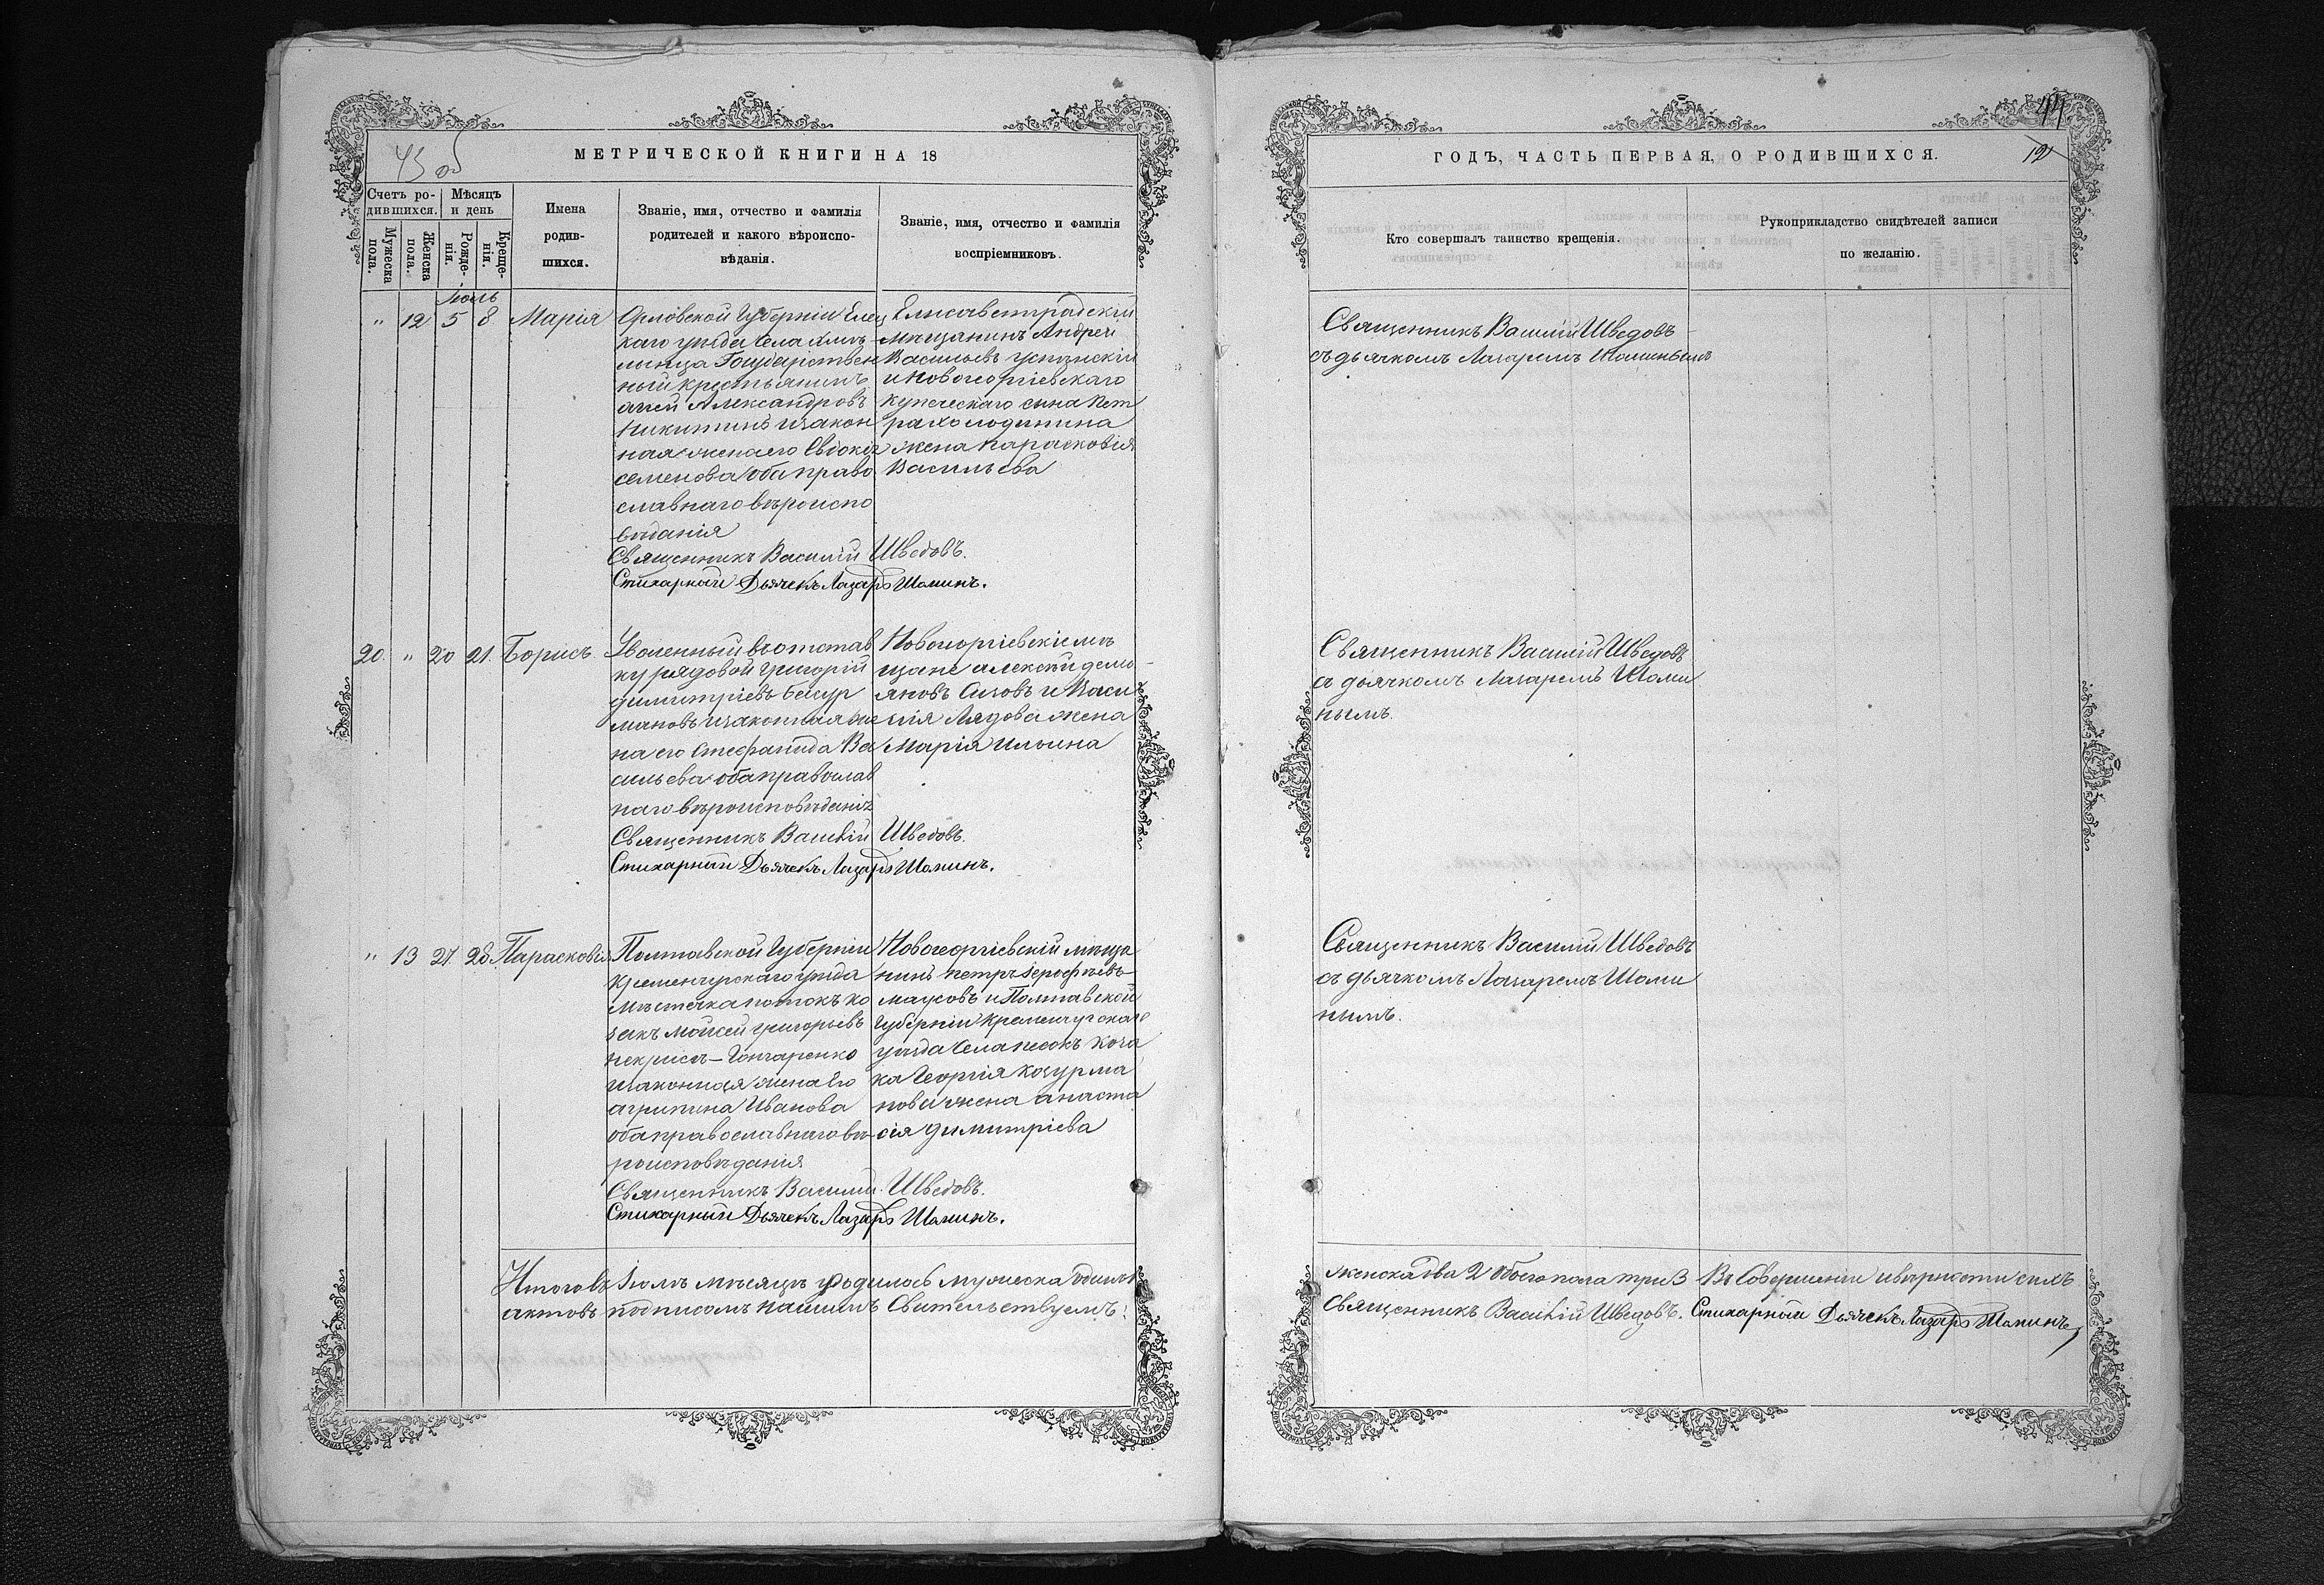 43 об
МЕТРИЧЕСКОЙ КНИГИ НА 18
Счетъ ро-
дившихся.
Мѣсяцъ
и день
Мужеска пола.
Женска пола.
Рожде-
нія.
Креще-
нія.
Имена
родив-
шихся.
Званіе, имя, отчество и фамилія
родителей и какого вѣроиспо-
вѣданія.
Званіе, имя, отчество и фамилія
воспріемниковъ.
Іюль
" 12 5 8 Марія
Орловской Губерніи Елец
каго уѣзда Села
Государствен
ный крестьянинъ
Александровъ
Никитинъ изакон
ная жена его Евдокія
Семенова оба право
славнаго вѣроиспо
вѣданія
Священникъ Василій Шведовъ.
Стихарный Дьячекъ Лазарь Шаминъ.
Елисаветградскій
мѣщанинъ Андрей
Васильевъ Успенскій
и Новогеоргіевскаго
купеческаго сына Пет
ра Холодинина
жена Парасковія
Васильева
20 " 20 21 Борисъ
Уволенный въ отстав
ку рядовой Григорій
Димитріевъ Бесур
мановъ изаконная же
на его Стефанида Ва
сильева оба православ
наго вѣроисповѣданія
Священникъ Василій Шведовъ.
Стихарный Дьячекъ Лазарь Шаминъ.
Новогеоргіевскіе мѣ
щане Алексѣй Демь-
яновъ Сизовъ и Васи
лія Лядова жена
Марія Ильина
" 13 27 28 Парасковія
Полтавской Губерніи
Кременчугскаго уѣзда
Мѣстечка Потокъ ко
закъ Моисей Григорьевъ
Некриса-Гончаренко
изаконная жена его
Агрипина Иванова
оба православнаго вѣ-
роисповѣданія
Священникъ Василій Шведовъ.
Стихарный Дьячекъ Лазарь Шаминъ.
Новогеоргіевскій мѣща
нинъ Петръ Ерофѣевъ
Маусовъ и Полтавской
Губерніи Кременчугскаго
уѣзда Села Песокъ Коза
ка Георгія Кочурма
нова жена Анаста
сія Димитріева
Итого въ Іюлѣ мѣсяцѣ родилось мужеска одинъ 1
актовъ подписомъ нашимъ Свѣтельствуемъ:
44
12
ГОДЪ, ЧАСТЬ ПЕРВАЯ, О РОДИВШИХСЯ.
Кто совершалъ таинство крещенія.
Рукоприкладство свидѣтелей записи
по желанію.
Священникъ Василій Шведовъ
съ дьячкомъ Лазаремъ Шаминымъ
Священникъ Василій Шведовъ
съ дьячкомъ Лазаремъ Шами
нымъ.
Священникъ Василій Шведовъ
съ дьячкомъ Лазаремъ Шами
нымъ.
женска два 2 обоего пола три 3 Въ Совершеніи ивѣрности сихъ
Священникъ Василій Шведовъ. Стихарный Дьячекъ Лазарь Шаминъ